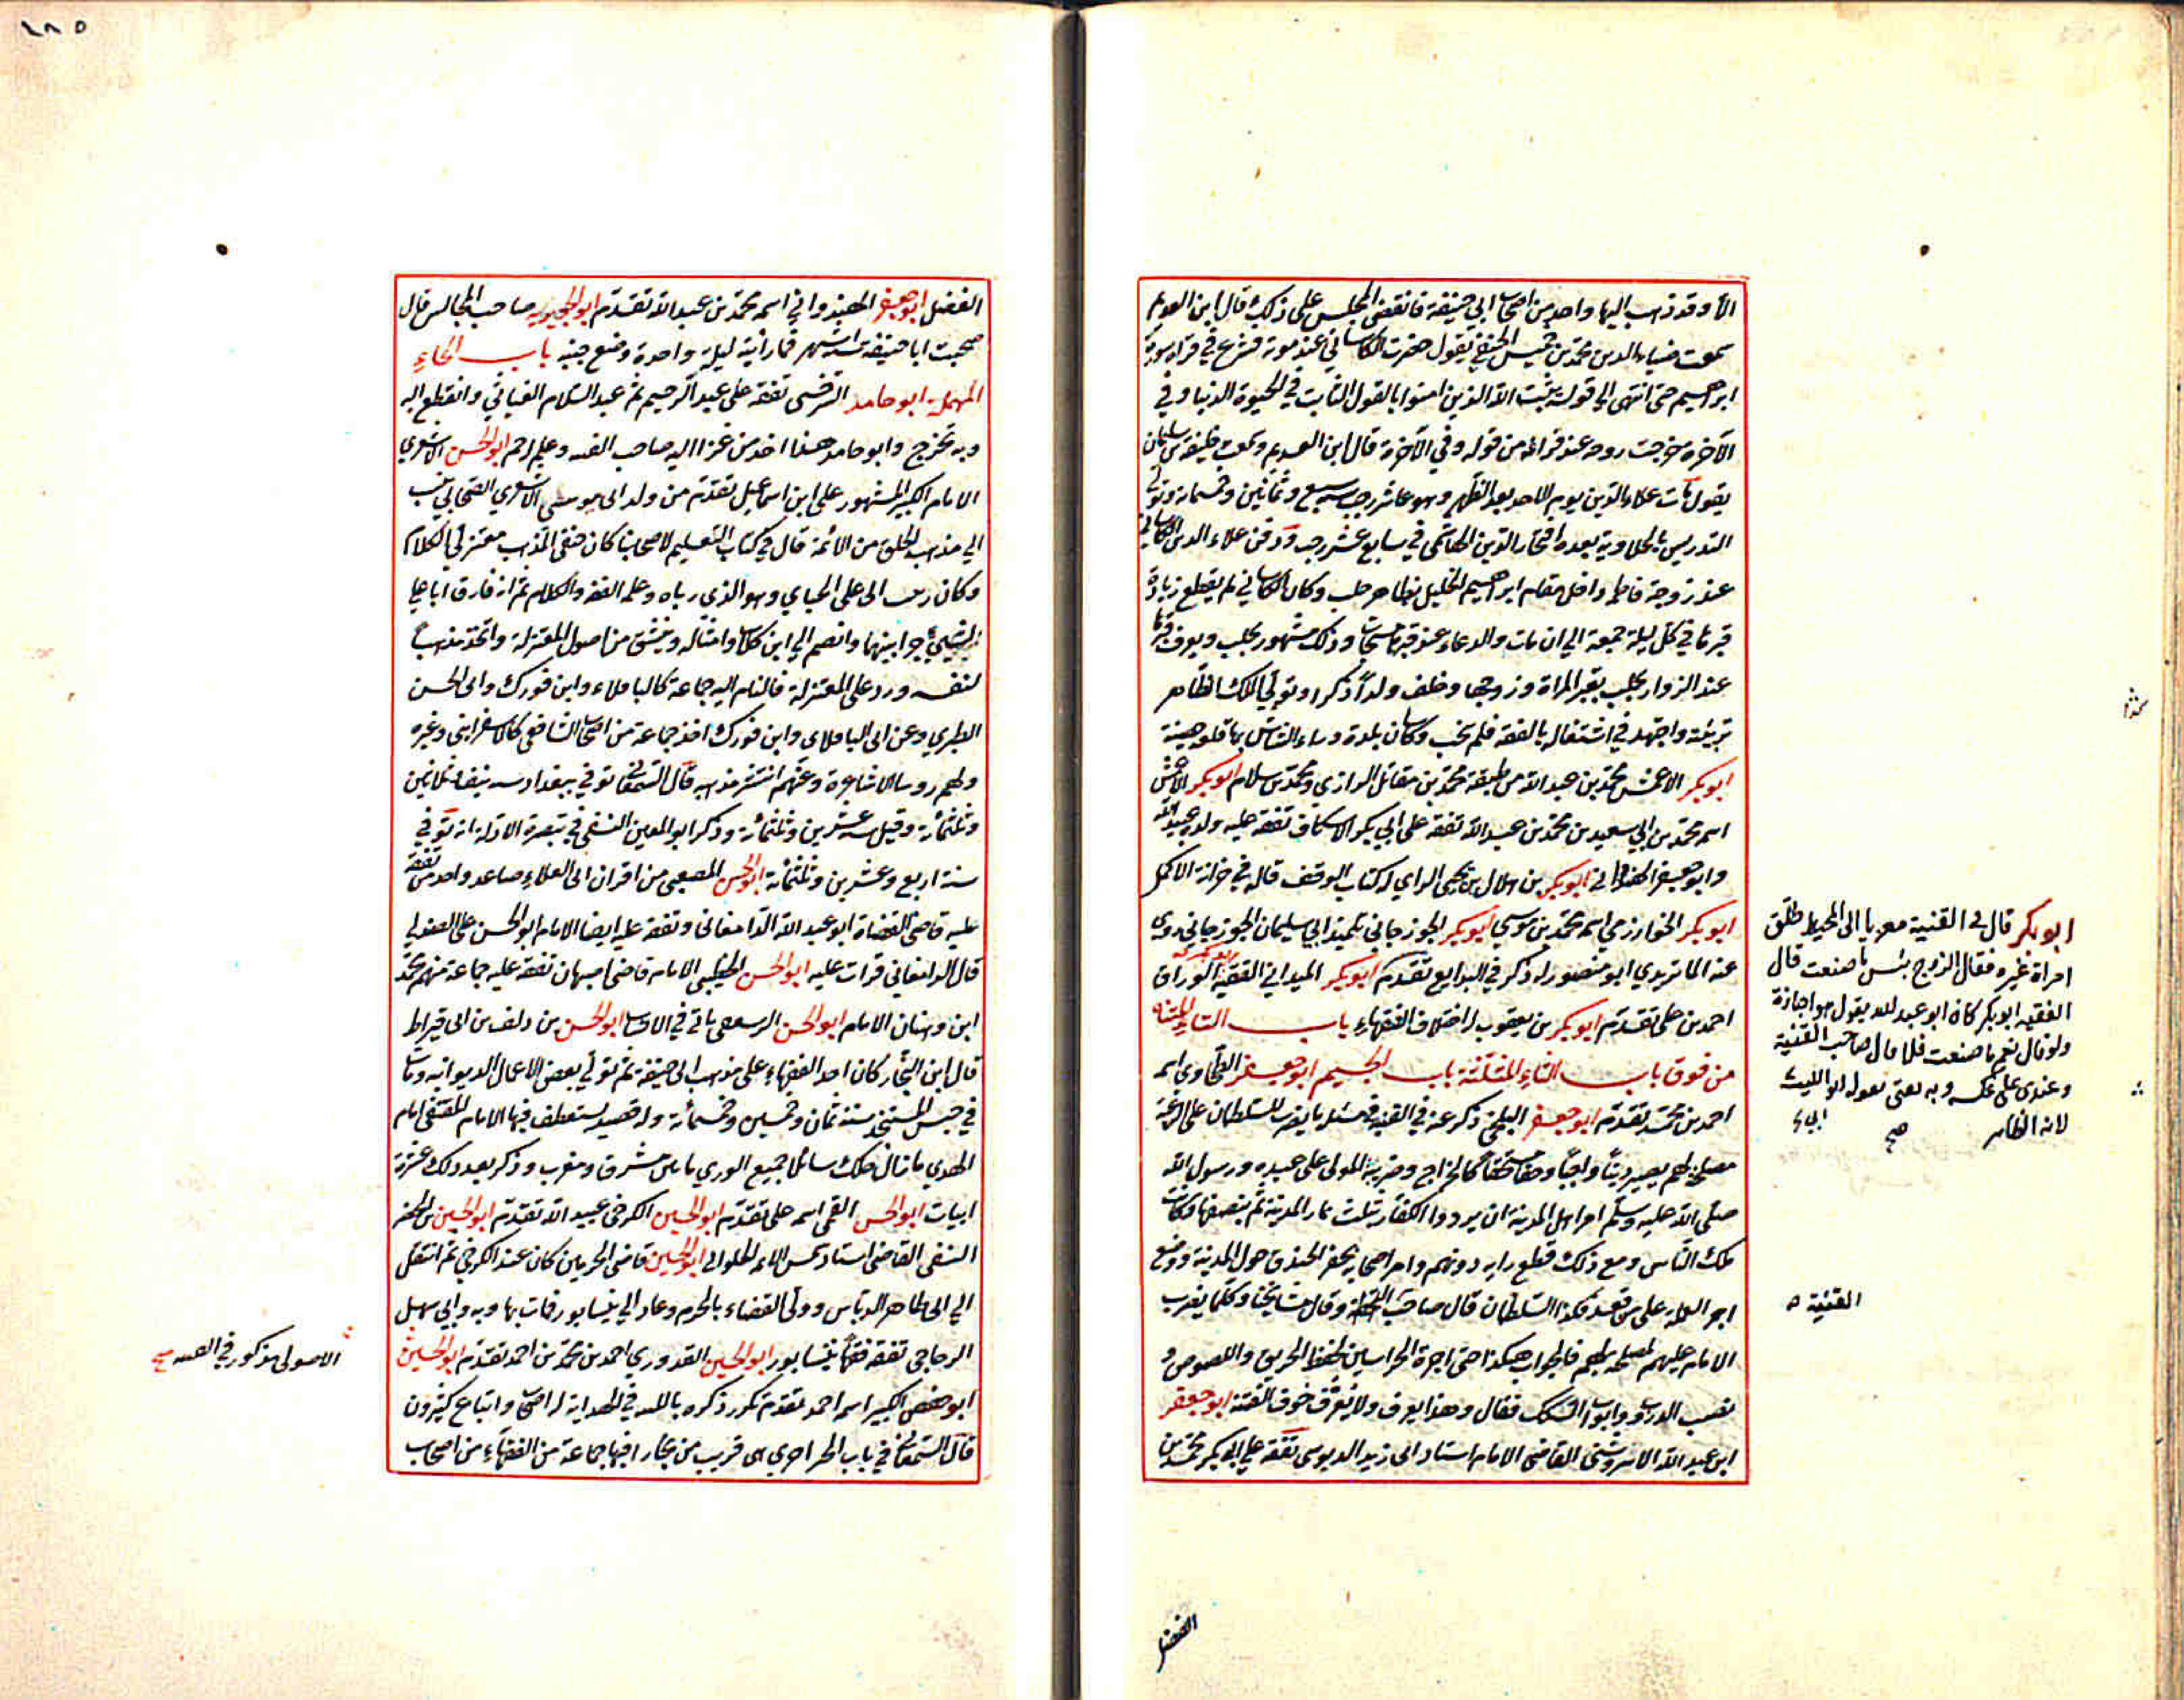 الا وقد ذهب اليها واحد من اصحاب ابي حنيفة فانقض المجلس على ذلك قال ابن العديم
سمعت ضياء الدين محمد بن خميس الحنفي يقول حضرت الكاساني عند موته فشرع في قراءة سورة
ابراهيم حتى انتهى الى قوله يثبت الله الذين امنوا بالقول الثابت في الحيوة الدنيا وفي
الآخرة خرجت روحه عند فراغه من قوله وفي الآخرة قال ابن العديم وسمعت خليفة بن سليمان
يقول مات علاء الدين يوم الاحد بعد الظهر وهو عاشر رجب سنة سبع وثمانين وخمسمائة وتولى
التدريس بالحلاوية بعده افتخار الدين الهاشمي في سابع عشر رجب ودفن علاء الدين الكاساني
عند زوجة فاطمة داخل مقام ابراهيم الخليل بظاهر حلب وكان الكاساني لم يقطع زيارة
قبرها في كل ليلة جمعة الى ان مات والدعاء عند قبرهما مستجاب وذلك مشهور بحلب ويعرف قبرها
عند الزوار بحلب بقبر المراة وزوجها وخلف ولداً ذكرا وتولى الملك الظاهر
تربيته واجتهد في اشتغاله بالفقه فلم ينجب وكان
ابو بكر الاعمش محمد بن عبد الله من طبقة محمد بن مقاتل الرازي ومحمد بن سلام ابو بكر الاعمش
اسمه محمد بن ابي سعيد بن محمد بن عبد الله تفقه على ابي بكر الاسكاف تفقه عليه ولده عبيد الله
وابو جعفر الهندواني ابو بكر بن هلال بن يحيى الراي له كتاب الوقف قاله في خزانة الاكمل
ابو بكر الخوارزمي اسمه محمد بن موسى ابو بكر الجوزجاني تلميذ ابي سليمان الجوزجاني روى
عنه الماتريدي ابو منصور له ذكر في البدايع تقدم ابو بكر الميداني الفقيه الوراق
احمد بن علي تقدم ابو بكر بن يعقوب له اختلاف الفقهاء باب التاء المثناة
من فوق باب الثاء المثلثة باب الجيم ابو جعفر الطحاوي اسمه
احمد بن محمد تقدم ابو جعفر البلخي ذكر عنه في القنية في مسئلة ما يضرب السلطان على الرعية
مصلحة لهم يصير ديناً واجباً وحقاً مستحقاً كالخراج وضريبة المولى على عبده ورسول الله
صلى الله عليه وسلم امر اهل المدينة ان يردوا الكفار بثلث ثمار المدينة ثم بنصفها وكانت
ملك الناس ومع ذلك قطع رايه دونهم وامر اصحابه بحفر الخندق حول المدينة ووضع
اجر العملة على من قعد فكذا السلطان قال صاحب وقال مشايخنا وكلما يضرب
الامام عليهم لمصلحة لهم فالجواب هكذا حتى اجرة الحراسين لحفظ الطريق واللصوص و
نصب الدروب وابواب السكك فقال وهذا يعرف ولا يعرف خوف الفتنة ابو جعفر
ابن عبد الله الاسروشني القاضي الامام استاد ابي زيد الدبوسي تفقه على ابي بكر محمد بن
الفضل
ابو بكر قال في القنية معزيا الى المحيط طلق
امراة غيره فقال الزوج بئس ما صنعت قال
الفقيه ابو بكر كان ابو عبد الله يقول هو اجازة
ولو قال نعم ما صنعت فلا قال صاحب القنية
وعندي على عكسه وبه يفتي ابو الليث
لانه الظاهر
صح
القنية
١٨٥
الفضل ابو جعفر الهندواني اسمه محمد بن عبد الله تقدم صاحب المجالس قال
صحبت ابا حنيفة ستة اشهر فما رأيته ليلة واحدة وضع جنبه باب الحاء
المهملة ابو حامد السرخسي تفقه على عبد الرحيم ثم عبد السلام وانقطع اليه
وبه تخرج وابو حامد هذا احد من عزا اليه صاحب القنية وعلم له حم ابو الحسن الاشعري
الامام الكبير المشهور على ابن اسماعيل تقدم من ولد ابي موسى الاشعري الصحابي ينسب
الى مذهبه الخلق من الائمة قال في كتاب التعليم لاصحابنا كان حنفي المذهب معتزلي الكلام
وكان ربيب ابي علي الجبائي وهو الذي رباه وعلمه الفقه والكلام ثم انه فارق ابا علي
لشيئ جرا بينهما وانضم الى ابن كلاب وامثاله من اصول المعتزلة واتخذ مذهباً
لنفسه ورد على المعتزلة فانضم اليه جماعة كالباقلاني وابن فورك وابي الحسن
الطبري وعن ابي الباقلاني وابن فورك اخذ جماعة من اصحاب الشافعي كالاسفرايني وغيره
ولهم روسا الاشاعرة وعنهم انتشر مذهبه قال السمعاني توفي ببغداد سنة نيف وثمانين
وثلثمائة وقيل سنة عشرين وثلثمائة وذكر ابو المعين النسفي في تبصرة الادلة انه توفي
سنة اربع وعشرين وثلثمائة ابو الحسن المصعبي من اقران ابي العلاء صاعد واحد من تفقه
عليه قاضي القضاة ابو عبد الله الدامغاني وتفقه عليه ايضا الامام ابو الحسن علي الصندلي
قال الدامغاني قرات عليه ابو الحسن الخطيبي الامام قاضي اصبهان تفقه عليه جماعة منهم محمد
ابن وهبان الامام ابو الحسن ياتي في الانساب ابو الحسن بن دلف بن ابي قيراط
قال ابن النجار كان احد الفقهاء على مذهب ابي حنيفة ثم تولى بعض الاعمال الديوانية ومات
في حبس المستنجد سنة ثمان وخمسين وخمسمائة وله قصيدة يستعطف فيها الامام المقتفي امام
الهدي ما نال ملك سائلا جميع الوري ما بين مشرق ومغرب وذكر بعد ذلك عشرة
ابيات ابو الحسن القمي اسمه علي تقدم ابو الحسين الكرخي عبيد الله تقدم ابو الحسين بن الخضر
النسفي القاضي استاد شمس الائمة الحلواني ابو الحسين قاضي الحرمين كان عند الكرخي ثم انتقل
الى ابي طاهر الدباس وولي القضاء بالحرم وعاد الى نيسابور فمات بها وبه وبابي سهل
الزجاجي تفقه فقهاء نيسابور ابو الحسين القدوري احمد بن محمد بن احمد تقدم ابو الحسين
ابو حفص الكبير اسمه احمد تقدم تكرر ذكره باللقب في الهداية له اصحاب واتباع كثيرون
قال السمعاني في باب الخيزاخزي هي قرية من بخارا فيها جماعة من الفقهاء من اصحاب
الاصولي مذكور في القنية صح